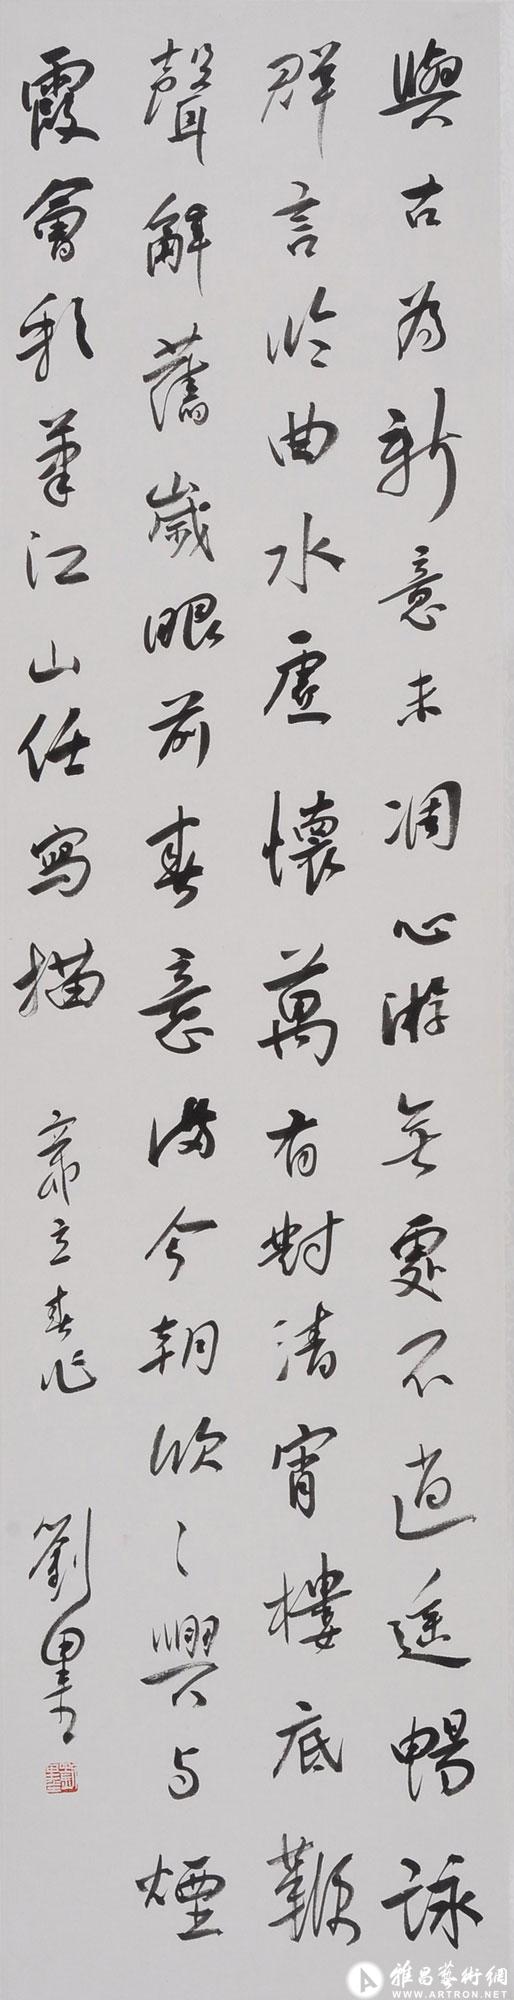 與古為新意未凋心游無處不逍遙暢詠
群言臨曲水虛懷萬有對清宵樓底鞭
聲辭舊歲眼前春意滿今朝欣〻興与煙
霞會彩筆江山任寫描
立春作
劉墨
雅昌藝術網
WWW.ARTRON.NET